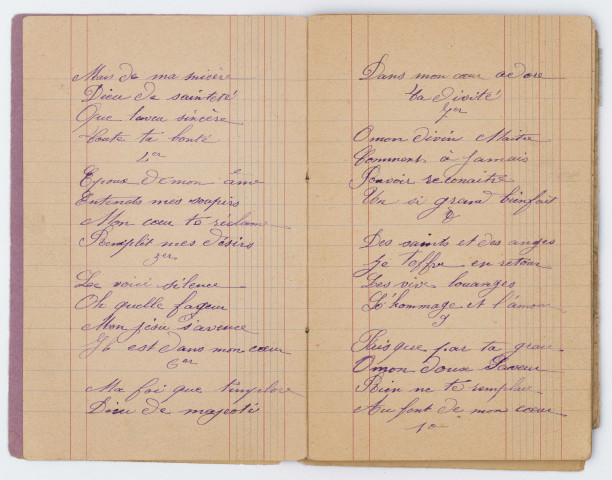 Mais de ma misère
Dieu de sainteté
Que laveu sincère
Toute ta bonté
4er
Epoux de mon âme
Entends mes soupirs
Mon cœur te réclame
Remplit mes désirs
5er
Le voici silence
Oh quelle faveur
Mon jésu s'avence
Il est dans mon cœur
6er
Ma foi que t'implore
Dieu de majesté
Dans mon cœur adore
ta divité
7er
O mon divin Maitre
Comment à Jamais
Pouvoir reconaitre
Un si grand bienfait
8
Des saints et des anges
Je t'offre en retour
Les vive louanges
L'hommage et l'amour
9
Puisque par ta grace
O mon doux Sauveur
Rien ne te remplace
Au font de mon coeur
10